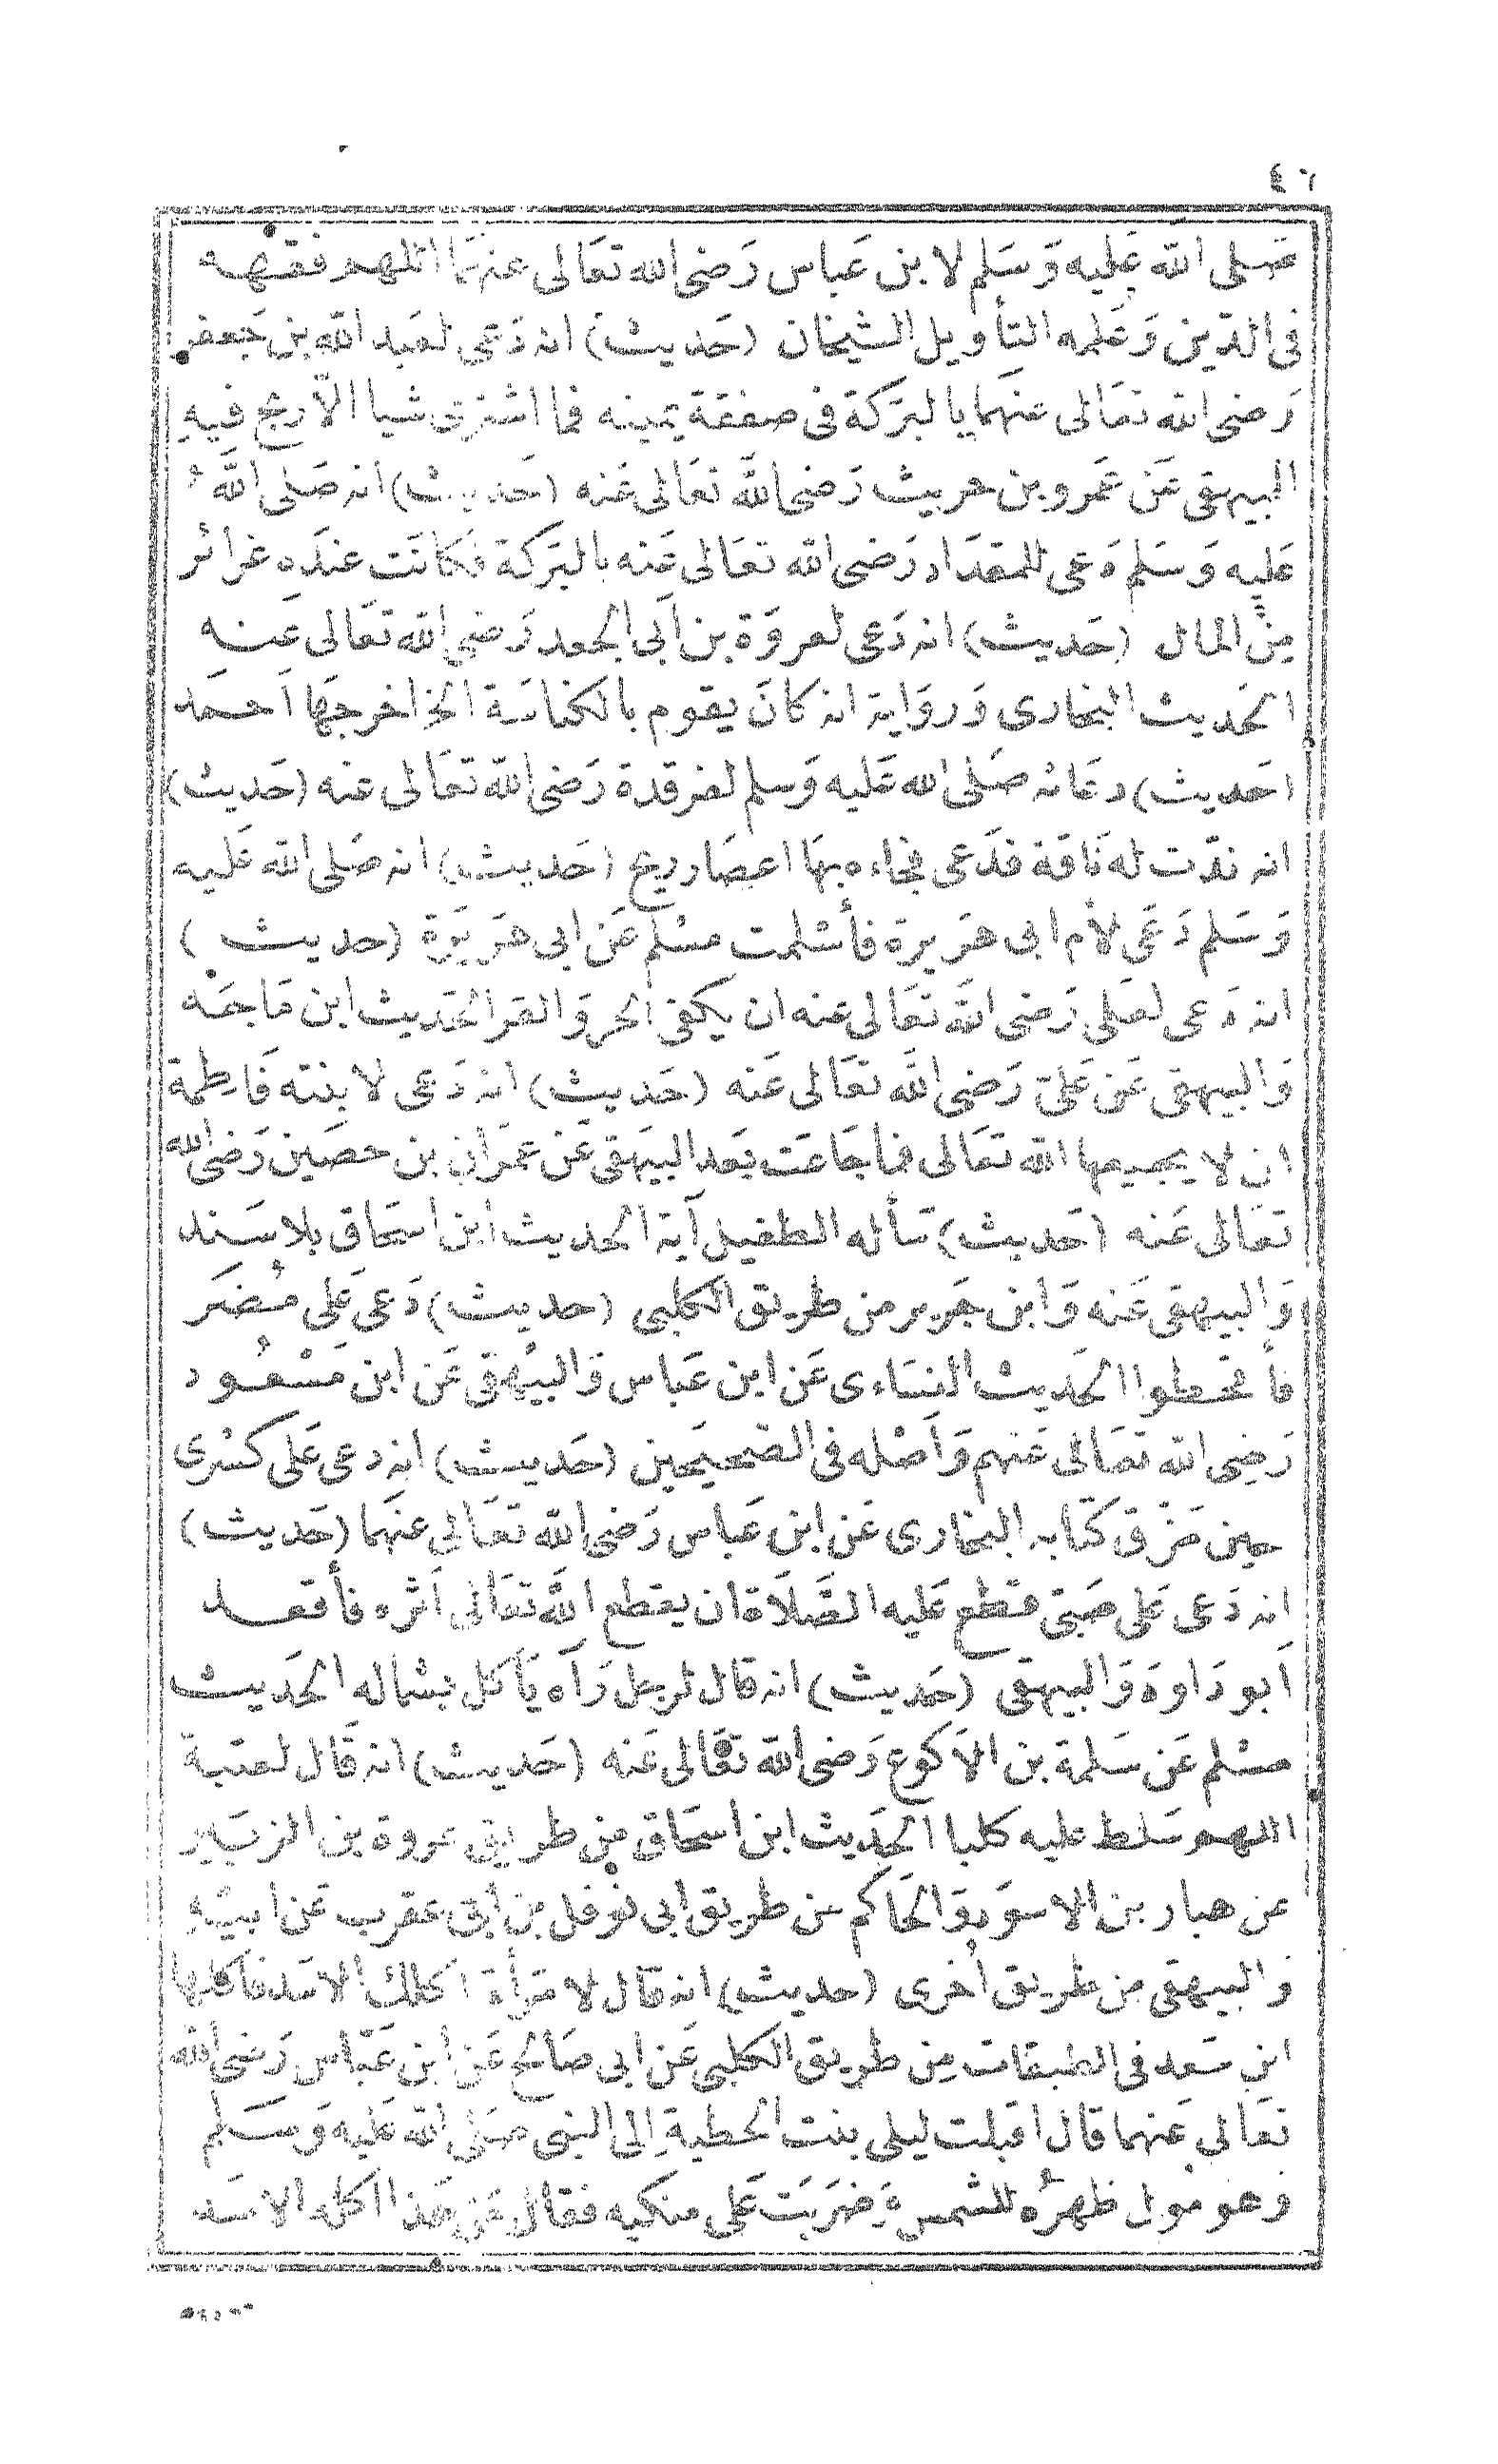 ٤٦
صلى الله عليه وسلم لابن عباس رضى الله تعالى عنهما اللهم فقهه
فى الدين وعلمه التأويل الشيخان (حديث) انه دعى لعبد الله بن جعفر
رضى الله تعالى عنهما بالبركة فى صفقة يمينه فما اشترى شيا الا ربح فيه
البيهقى عن عمرو بن حريث رضى الله تعالى عنه (حديث) انه صلى الله
عليه وسلم دعى للمقداد رضى الله تعالى عنه بالبركة فكانت عنده غرائر
من المال (حديث) انه دعى لعروة بن ابى الجعد رضى الله تعالى عنه
الحديث البخارى ورواية انه كان يقوم بالكناسة الخ اخرجها احمد
(حديث) دعائه صلى الله عليه وسلم لغرقدة رضى الله تعالى عنه (حديث)
انه ندّت له ناقة فدعى فجاءه بها اعصار ريح (حديث) انه صلى الله عليه
وسلم دعى لأم ابى هريرة فأسلمت مسلم عن ابى هريرة (حديث)
انه دعى لعلى رضى الله تعالى عنه ان يكفى الحر والقر الحديث ابن ماجه
والبيهقى عن علىّ رضى الله تعالى عنه (حديث) انه دعى لابنته فاطمة
ان لا يجيعها الله تعالى فما جاعت بعد البيهقى عن عمران بن حصين رضى الله
تعالى عنه (حديث) سأله الطفيل آية الحديث ابن اسحاق بلا سند
والبيهقى عنه وابن جرير من طريق الكلبى (حديث) دعى على مضر
فأقحطوا الحديث النساءى عن ابن عباس والبيهقى عن ابن مسعود
رضى الله تعالى عنهم واصله فى الصحيحين (حديث) انه دعى على كسرى
حين مزق كتابه البخارى عن ابن عباس رضى الله تعالى عنهما (حديث)
انه دعى على صبى قطع عليه الصلاة ان يقطع الله تعالى اثره فأقعد
ابو داود والبيهقى (حديث) انه قال لرجل رآه يأكل بشماله الحديث
مسلم عن سلمة بن الاكوع رضى الله تعالى عنه (حديث) انه قال لعتبة
اللهم سلط عليه كلبا الحديث ابن اسحاق من طريق عروة بن الزبير
عن هبار بن الاسود والحاكم من طريق ابى نوفل بن ابى عقرب عن ابيه
والبيهقى من طريق اخرى (حديث) انه قال لامرأة اكلك الاسد فأكلها
ابن سعد فى الطبقات من طريق الكلبى عن ابى صالح عن ابن عباس رضى الله
تعالى عنهما قال اقبلت ليلى بنت الحطية إلى النبى صلى الله عليه وسلم
وهو مول ظهره للشمس وضربت على منكبه فقال من هذا اكله الاسد